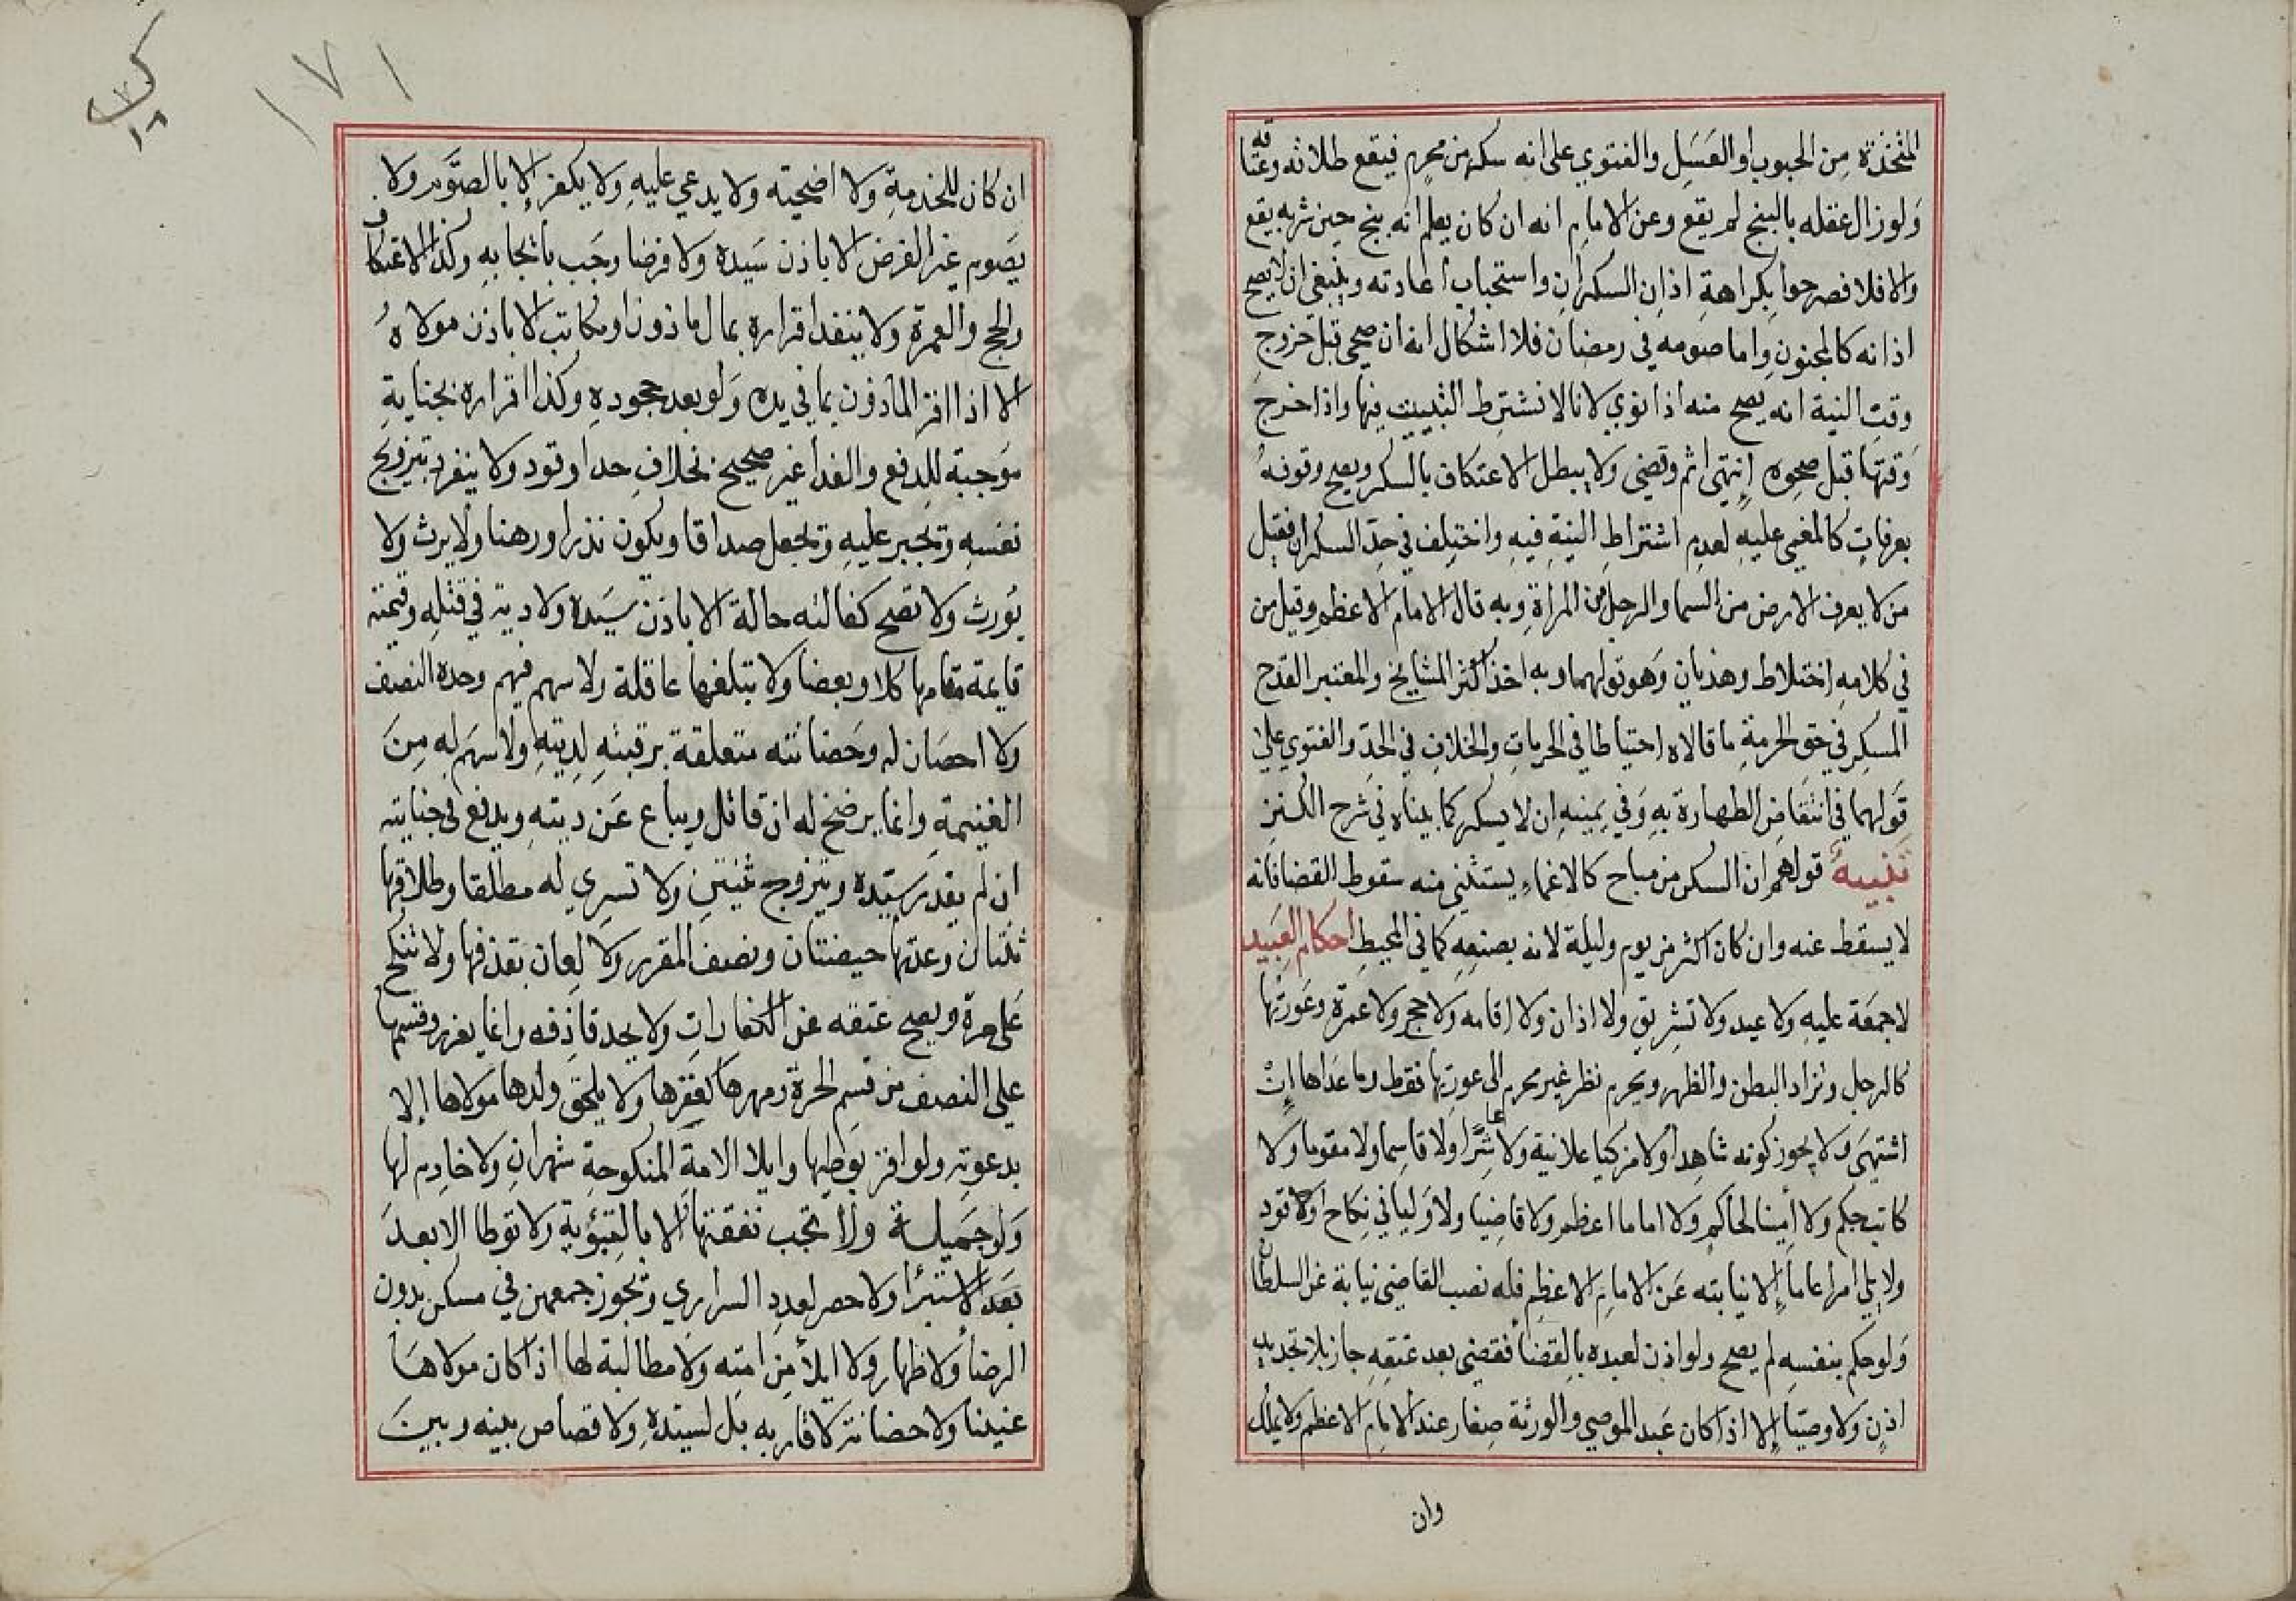 المتخذة من الحبوب أو العسل والفتوي على انه سكر من محرم فيقع طلاقه وعتاقه
ولو زال عقله بالبنج لم يقع وعن الامام انه ان كان يعلم انه بنج حين شربه يقع
والا فلا فصرحوا بكراهة اذان السكران واستحباب اعادته وينبغي ان لا يصح
اذانه كالمجنون واما صومه في رمضان فلا اشكال انه ان صحي قبل خروج
وقت النية انه يصح منه اذا نوي لانا لا نشترط التبييت فيها واذا خرج
وقتها قبل صحوه إنتهى اثم وقضي ولا يبطل الاعتكاف بالسكر ويصح وقوفه
بعرفات كالمغمي عليه لعدم اشتراط النية فيه واختلف في حد السكران فقيل
من لا يعرف الارض من السما والرجل من المراة وبه قال الامام الاعظم وقيل من
في كلامه إختلاط وهذيان وهو قولهما وبه اخذ اكثر المشايخ والمعتبر القدح
المسكر في حق الحرمة ما قالاه إحتياطا في الحرمات والخلاف في الحد والفتوي علي
قولهما في انتقاض الطهارة به وفي يمينه ان لا يسكر كما بيناه في شرح الكنز
تنبيه قولهم ان السكر من مباح كالاغماء يستثني منه سقوط القضا فانه
لا يسقط عنه وان كان اكثر من يوم وليلة لانه بصنعه كما في المحيط احكام العبيد
لا جمعة عليه ولا عيد ولا تشريق ولا اذان ولا اقامه ولا حج ولا عمرة وعورتها
كالرجل وتزاد البطن والظهر ويحرم نظر غير محرم الى عورتها فقط وما عداها إن
اشتهى ولا يجوز كونه شاهدا ولا مزكيا علانية ولا عاشرا ولا قاسما ولا مقوما ولا
كاتب حكم ولا أمينا لحاكم ولا اماما اعظم ولا قاضيا ولا وليا في نكاح اولا قود
ولا يلي امرا عاما إلا نيابته عن الامام الاعظم فله نصب القاضي نيابة عن السلطان
ولو حكم بنفسه لم يصح ولو اذن لعبده بالقضا فقضي بعد عتقه جاز بلا تجديد
اذن ولا وصيا إلا اذا كان عبد الموصي والورثة صغار عند الامام الاعظم ولا يملك
وان
١٧١
ان كان للخدمة ولا اضحيته ولا يدعي عليه ولا يكفر إلا بالصوم ولا
يصوم غير الفرض الا باذن سيده ولا فرضا وجب بايجابه وكذا الاعتكاف
والحج والعمرة ولا ينفذ اقراره بمال ماذون او مكاتب الا باذن مولاه
الا اذا اقر المأذون بما في يده ولو بعد حجوده وكذا اقراره بجناية
موجبة للدفع والفدا غير صحيح بخلاف حد او قود ولا ينفرد بتزويج
نفسه ويجبر عليه ويجعل صداقا ويكون نذرا ورهنا ولا يرث ولا
يورث ولا تصح كفالته حالة الا باذن سيده ولا دية في قتله وقيمته
قايمة مقامها كلا وبعضا ولا يتلفها عاقلة ولا سهم فيهم وحده النصف
ولا احصان له وحضانته متعلقة برقبته لديته ولا سهم له من
الغنيمة وانما يرضخ له ان قاتل ويباع عن ديته ويدفع في جنايته
ان لم يفد سيده ويتزوج ثنتين ولا تسري له مطلقا وطلاقها
ثنتان وعدتها حيضتان ونصف المقرر ولا لعان بقذفها ولا تنكح
على حرة ويصح عتقه عن الكفارات ولا يحد قاذفه وانما يعزر وقسمها
على النصف من قسم الحرة ومهرها كفقرها ولا يلحق ولدها مولاها إلا
بدعوته ولو اقر بوطيها وايلا الامة المنكوحة شهران ولا خادم لها
ولو جميلة ولا تجب نفقتها الا بالتبؤية ولا توطا إلا بعد
بعد الاستبرا ولا حصر لعدد السراري ويجوز جمعهن في مسكن بدون
الرضا ولا ظهار ولا ايلا من امته ولا مطالبة لها اذا كان مولاها
عنينا ولا حضانة لاقاربه بل لسيده ولا قصاص بينه وبين